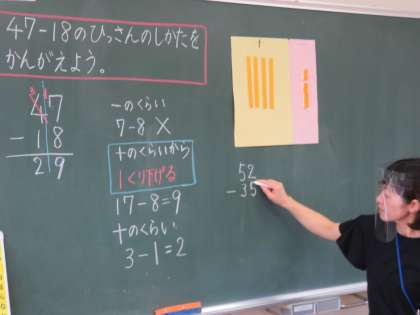 47-18のひっさんのしかたを
かんがえよう。
3
47
-18
29
一のくらい
7-8 X
十のくらいから
1くり下げる
17-8=9
十のくらい
3-1=2
52
-35